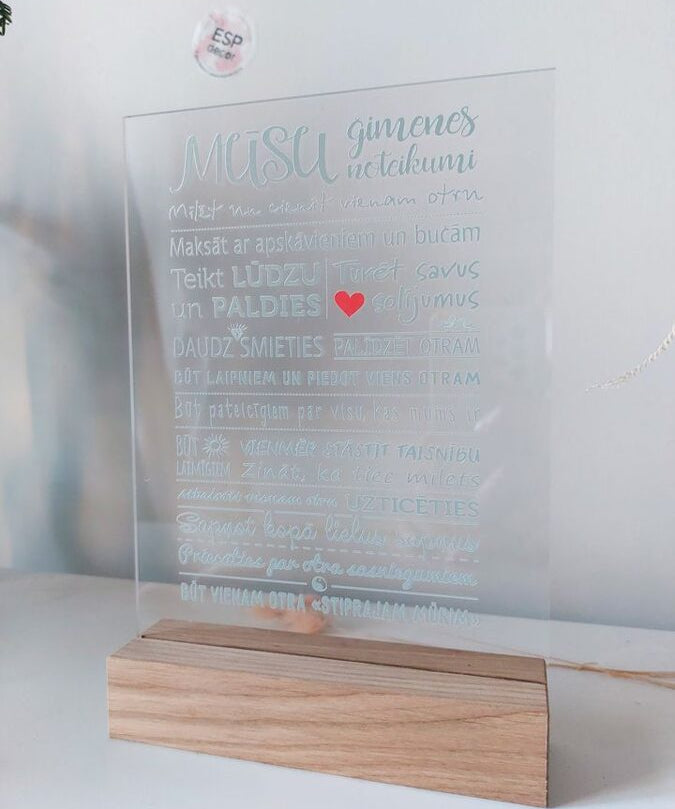 ESP
decor
MŪSU ģimenes
noteikumi
Mīlēt un cienīt vienam otru
Maksāt ar apskāvieniem un bučām
Teikt LŪDZU
un PALDIES
Turēt savus
solījumus
DAUDZ SMIETIES
PALĪDZĒT OTRAM
BŪT LAIPNIEM UN PIEDOT VIENS OTRAM
Būt pateicīgiem par visu, kas mums ir
BŪT
LAIMĪGIEM
VIENMĒR STĀSTĪT TAISNĪBU
Zināt, ka tiec mīlēts
Atbalstīt vienam otru
UZTICĒTIES
Sapņot kopā lielus sapņus
Priecāties par otra sasniegumiem
BŪT VIENAM OTRA «STIPRAJAM MŪRIM»